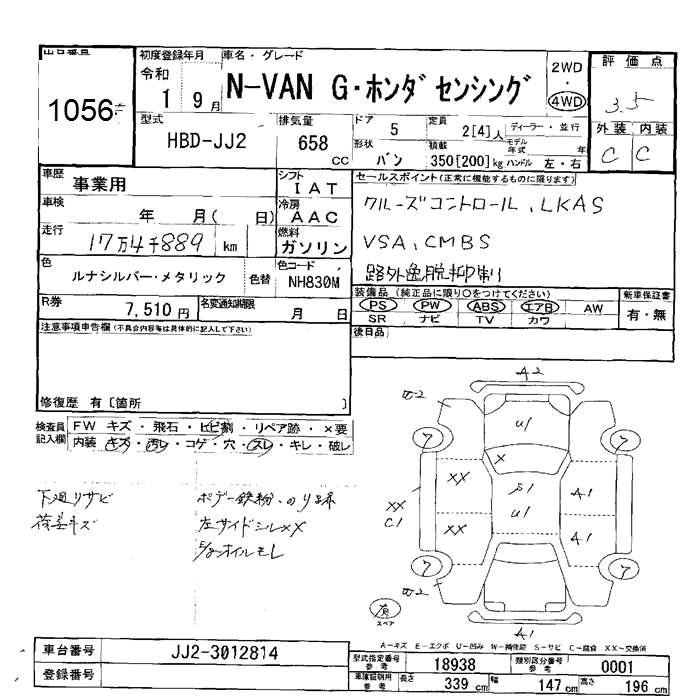 出品番号
1056
初度登録年月
令和
1 9月
車名・グレード
N-VAN G・ホンダセンシング
2WD
・
4WD
評価点
3.5
外装 内装
C C
型式
HBD-JJ2
排気量
658 cc
ドア 5
形状 バン
定員 2[4]人
積載 350[200]kg
ディーラー・並行
モデル年式 年
ハンドル 左・右
車歴
事業用
シフト
IAT
セールスポイント(正常に機能するものに限ります)
クルーズコントロール、LKAS
VSA、CMBS
路外逸脱抑制
車検
年 月( 日)
冷房
AAC
走行
17万4千889 km
燃料
ガソリン
色
ルナシルバー・メタリック
色替
色コード
NH830M
装備品(純正品に限り○をつけてください)
PS PW ABS エアB AW
SR ナビ TV カワ
新車保証書
有・無
R券
7,510円
名変通知期限
月 日
後日品
注意事項申告欄(不具合内容等は具体的に記入して下さい)
修復歴 有〔箇所 〕
検査員記入欄
FW キズ・飛石・ヒビ割・リペア跡・×要
内装 キズ・汚レ・コゲ・穴・スレ・キレ・破レ
下廻りサビ
荷室キズ
ボデー鉄粉、のり跡
左サイドシルXX
A2
U1
X
XX
XX
XX
C1
S1
U1
A1
A1
A1
7
7
7
7
有
スペア
A-キズ E-エクボ U-凹み W-補修跡 S-サビ C-腐食 XX-交換済
車台番号
JJ2-3012814
登録番号
型式指定番号 参考
18938
類別区分番号 参考
0001
車庫証明用 参考
長さ 339 cm
幅 147 cm
高さ 196 cm